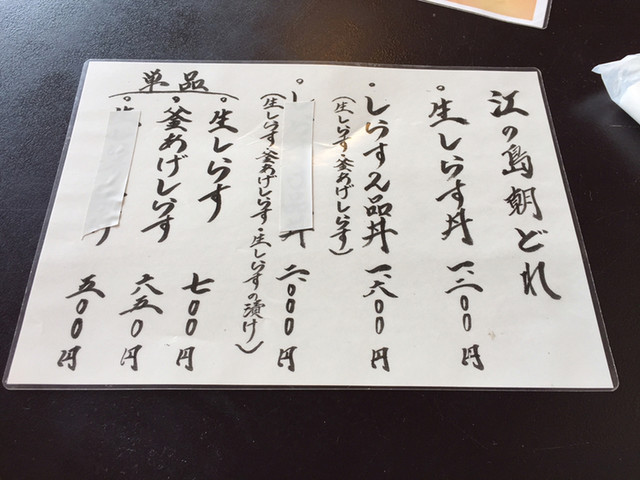 江の島朝どれ
。生しらす丼 一、三〇〇円
。しらす2品丼 一、六〇〇円
(生しらす・釜あげしらす)
。し 丼 二、〇〇〇円
(生しらす・釜あげしらす・生しらすの漬け)
単品
。生しらす 七〇〇円
。釜あげしらす 六五〇円
五〇〇円